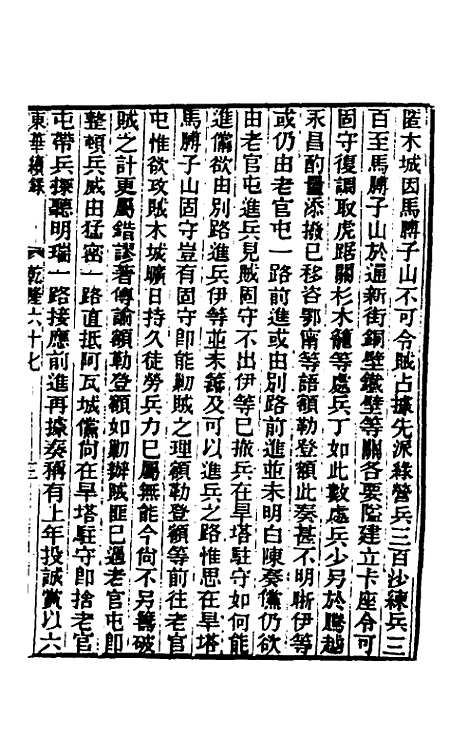 匿木城因馬膊子山不可令賊占據先派綠營兵三百沙練兵三
百至馬膊子山於通新街銅壁鐵壁等關各要隘建立卡座令可
固守復調取虎踞關杉木籠等處兵丁如此數處兵少另於騰越
永昌酌量添撥已移咨鄂甯等語額勒登額此奏甚不明晰伊等
或仍由老官屯一路前進或由別路前進並未明白陳奏儻仍欲
由老官屯進兵見賊固守不出伊等已撤兵在旱塔駐守如何能
進儻欲由別路進兵伊等並未籌及可以進兵之路惟思在旱塔
馬膊子山固守豈有固守卽能勦賊之理額勒登額等前往老官
屯惟欲攻賊木城曠日持久徒勞兵力已屬無能今尙不另籌破
賊之計更屬錯謬著傳諭額勒登額如勦辦賊匪已過老官屯卽
整頓兵威由猛密一路直抵阿瓦城儻尙在旱塔駐守卽捨老官
屯帶兵探聽明瑞一路接應前進再據奏稱有上年投誠賞以六
東華續錄 乾隆六十七 三